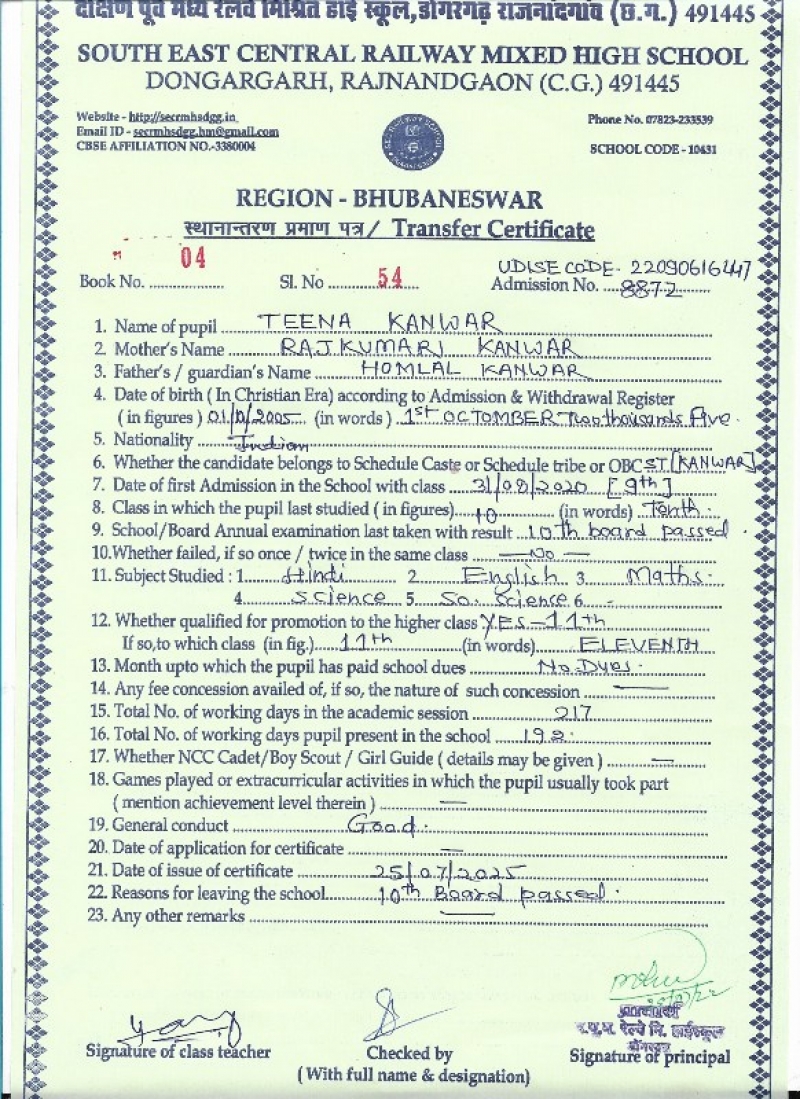 दक्षिण पूर्व मध्य रेलवे मिश्रित हाई स्कूल,डोंगरगढ़ राजनांदगांव (छ.ग.) 491445
SOUTH EAST CENTRAL RAILWAY MIXED HIGH SCHOOL
DONGARGARH, RAJNANDGAON (C.G.) 491445
Website - http://secrmhsdgg.in
Phone No. 07823-233539
Email ID - secrmhsdgg.hm@gmail.com
CBSE AFFILIATION NO.-3380004
SCHOOL CODE - 10431
REGION - BHUBANESWAR
स्थानान्तरण प्रमाण पत्र / Transfer Certificate
UDISE CODE- 22090616447
Book No. 04 Sl. No 54 Admission No. 8872
1. Name of pupil TEENA KANWAR
2. Mother's Name RAJKUMARI KANWAR
3. Father's / guardian's Name HOMLAL KANWAR
4. Date of birth ( In Christian Era) according to Admission & Withdrawal Register
( in figures ) 01/10/2005 (in words ) 1st OCTOMBER Two thousands Five.
5. Nationality Indian
6. Whether the candidate belongs to Schedule Caste or Schedule tribe or OBC ST [KANWAR]
7. Date of first Admission in the School with class 31/08/2020 [9th]
8. Class in which the pupil last studied ( in figures) 10 (in words) Tenth.
9. School/Board Annual examination last taken with result 10th board passed.
10. Whether failed, if so once / twice in the same class —No—
11. Subject Studied : 1. Hindi 2 English 3. Maths.
4. Science 5. So. Science 6. -
12. Whether qualified for promotion to the higher class YES-11th
If so,to which class (in fig.) 11th (in words) ELEVENTH
13. Month upto which the pupil has paid school dues No Dyes.
14. Any fee concession availed of, if so, the nature of such concession —
15. Total No. of working days in the academic session 217
16. Total No. of working days pupil present in the school 192.
17. Whether NCC Cadet/Boy Scout / Girl Guide ( details may be given ) —
18. Games played or extracurricular activities in which the pupil usually took part
( mention achievement level therein ) —
19. General conduct Good.
20. Date of application for certificate —
21. Date of issue of certificate 25/07/2025
22. Reasons for leaving the school 10th Board passed.
23. Any other remarks —
Signature of class teacher
Checked by
Signature of principal
( With full name & designation)